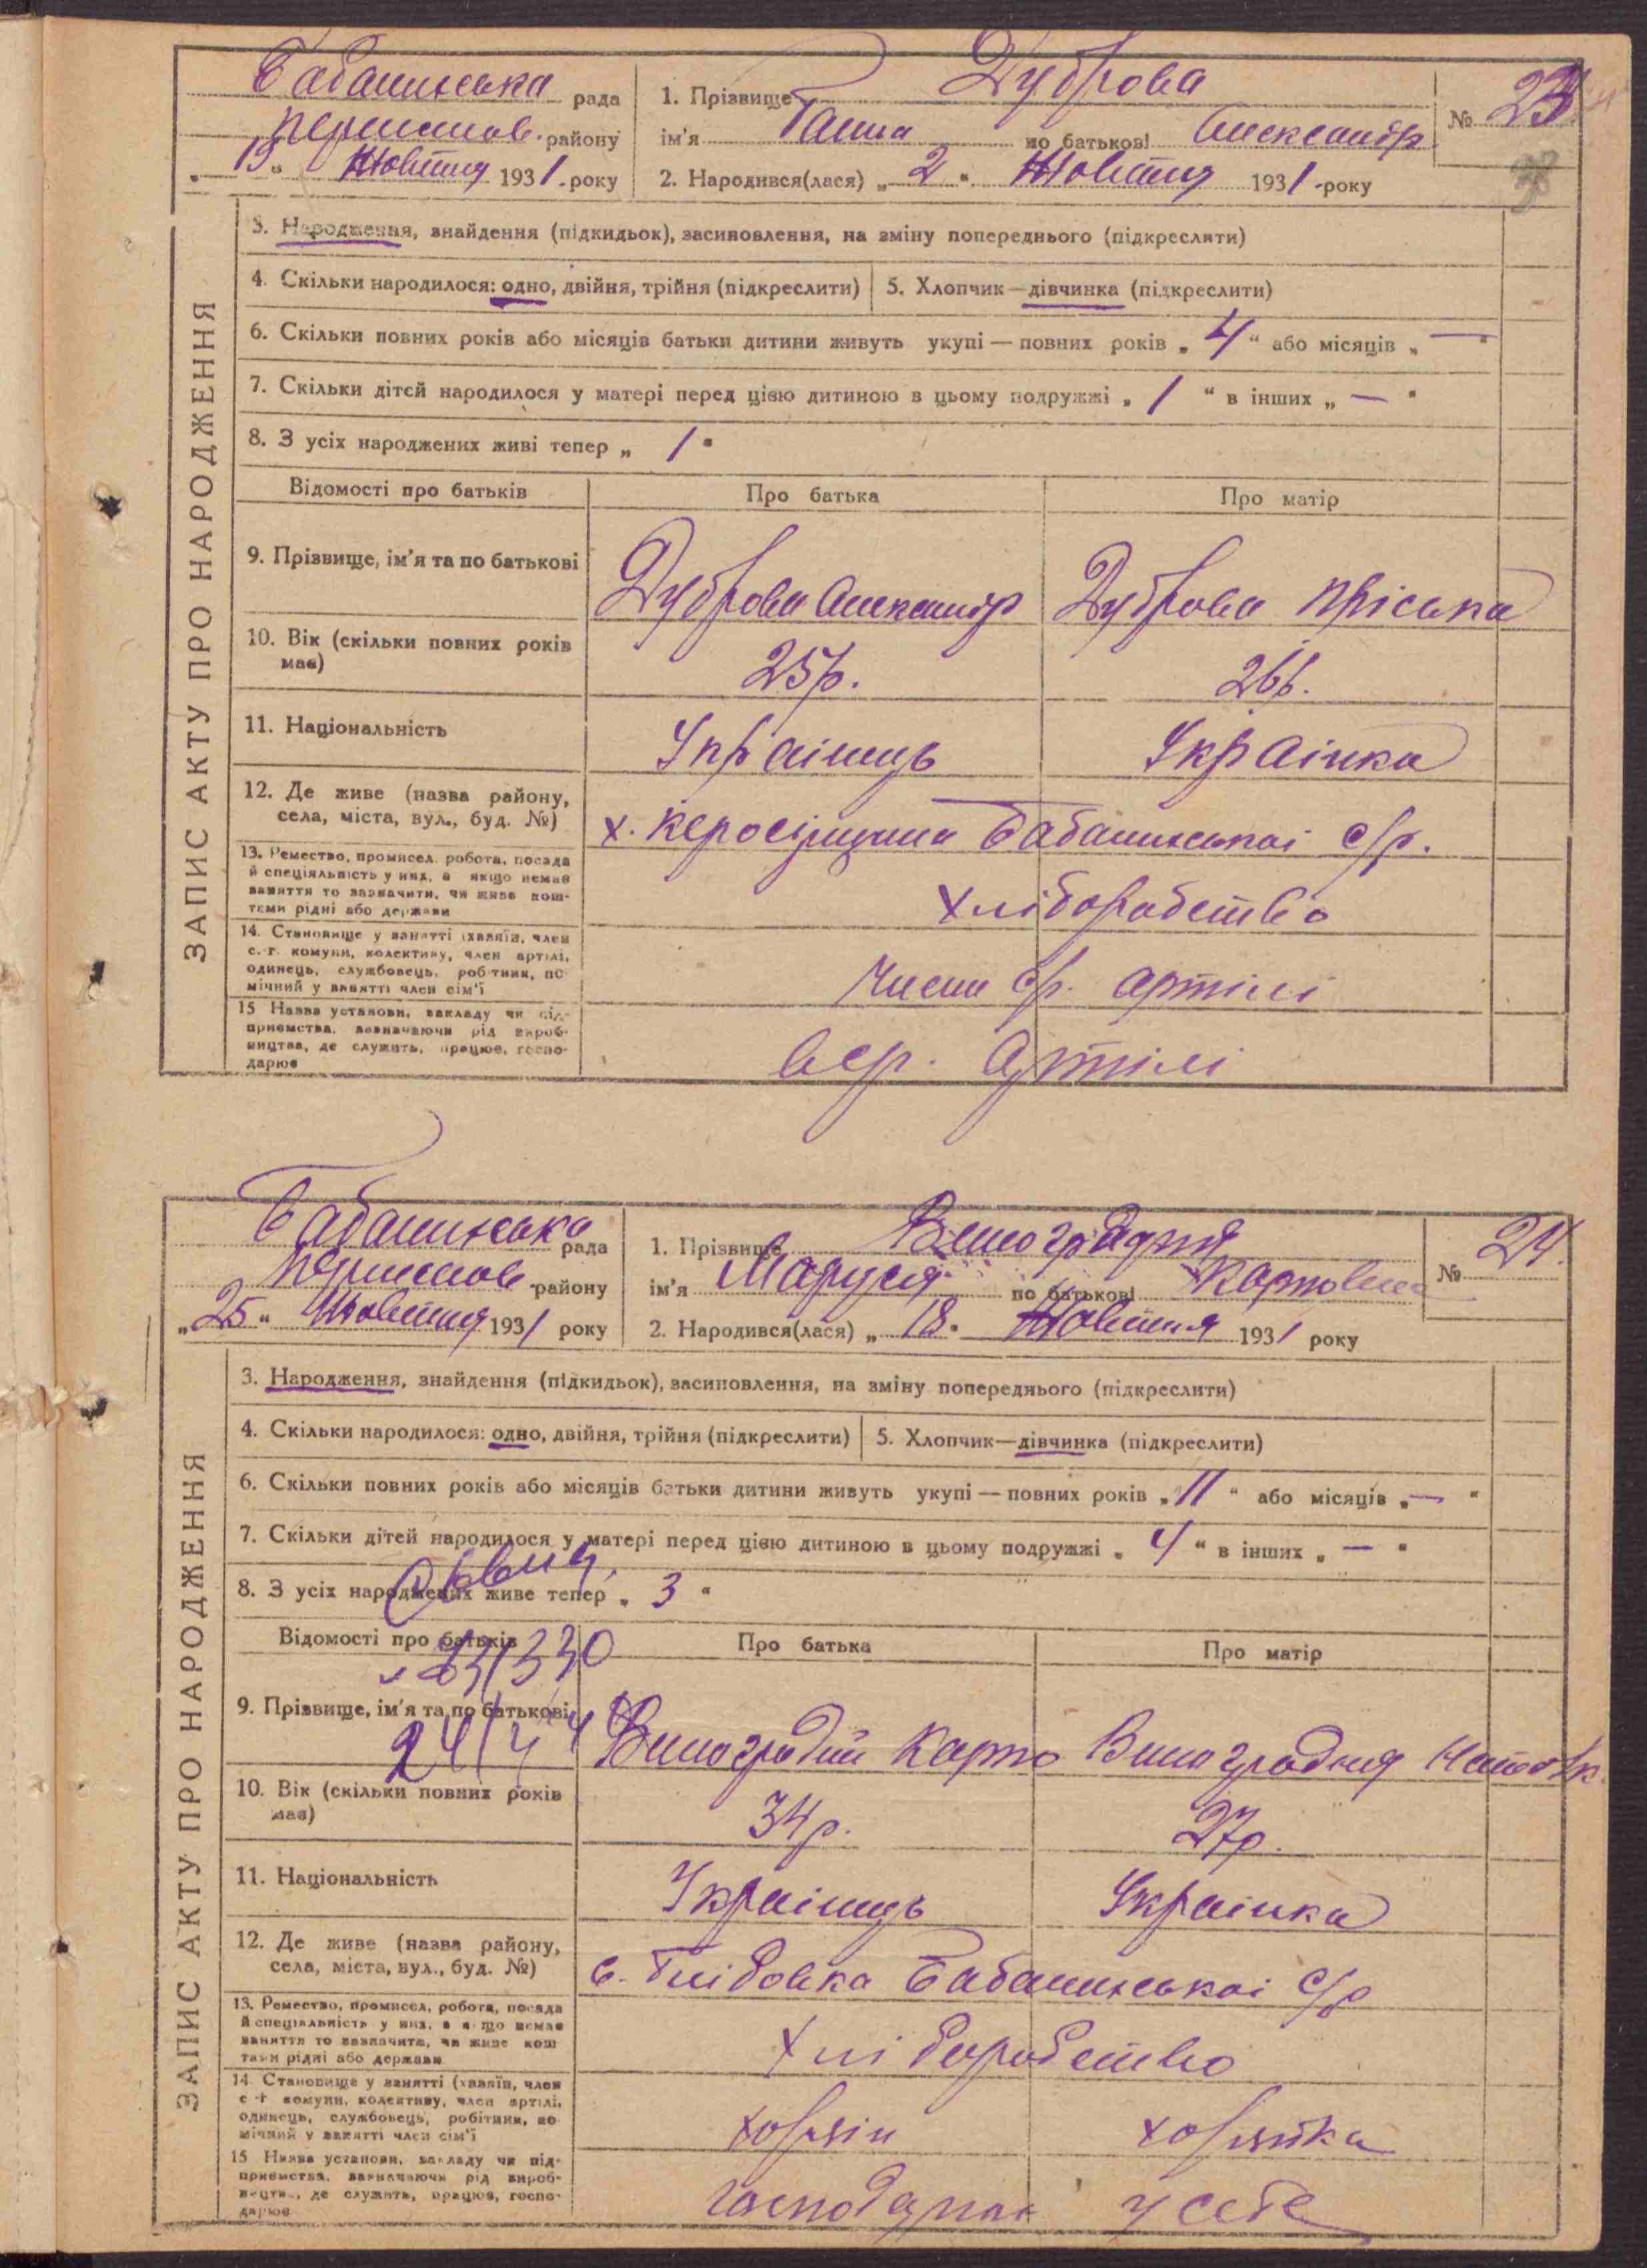 Бабанинська рада
району
15 Жовтня 1931 року
1. Прізвище Дуброва
ім'я Ганна по батькові Олександр
2. Народився(лася) „2“ Жовтня 1931 року
№ 23
ЗАПИС АКТУ ПРО НАРОДЖЕННЯ
3. Народження, знайдення (підкидьок), засиновлення, на зміну попереднього (підкреслити)
4. Скільки народилося: одно, двійня, трійня (підкреслити)
5. Хлопчик—дівчинка (підкреслити)
6. Скільки повних років або місяців батьки дитини живуть укупі — повних років „4“ або місяців „—“
7. Скільки дітей народилося у матері перед цією дитиною в цьому подружжі „1“ в інших „—“
8. З усіх народжених живі тепер „1“
Відомості про батьків Про батька Про матір
9. Прізвище, ім'я та по батькові Дуброва Олександр Дуброва Пріська
10. Вік (скільки повних років має) 25р. 26р.
11. Національність Українець Українка
12. Де живе (назва району, села, міста, вул., буд. №) х. Бабанинськоі с/р.
13. Ремество, промисел, робота, посада й спеціяльність у них, а якщо немає заняття то зазначити, чи живе коштами рідні або держави
Хліборобство
14. Становище у занятті (хазяїн, член с.-г. комуни, колективу, член артілі, одинець, службовець, робітник, помічний у занятті член сім'ї
Члени с/г. артілі
15. Назва установи, закладу чи підприємства, зазначаючи рід виробництва, де служить, працює, господарює
артілі
Бабанинська рада
району
„25“ Жовтня 1931 року
1. Прізвище Виноградня
ім'я Маруся по батькові Карповна
2. Народився(лася) „18“ Жовтня 1931 року
№ 24.
ЗАПИС АКТУ ПРО НАРОДЖЕННЯ
3. Народження, знайдення (підкидьок), засиновлення, на зміну попереднього (підкреслити)
4. Скільки народилося: одно, двійня, трійня (підкреслити)
5. Хлопчик—дівчинка (підкреслити)
6. Скільки повних років або місяців батьки дитини живуть укупі — повних років „11“ або місяців „—“
7. Скільки дітей народилося у матері перед цією дитиною в цьому подружжі „4“ в інших „—“
8. З усіх народжених живе тепер „3“
Відомості про батьків Про батька Про матір
9. Прізвище, ім'я та по батькові Виноградній Карпо Виноградня
10. Вік (скільки повних років має) 34р. 27р.
11. Національність Українець Українка
12. Де живе (назва району, села, міста, вул., буд. №) Бабанинськоі с/р
13. Ремество, промисел, робота, посада й спеціяльність у них, а якщо немає заняття то зазначити, чи живе коштами рідні або держави
Хліборобство
14. Становище у занятті (хазяїн, член с.-г. комуни, колективу, член артілі, одинець, службовець, робітник, помічний у занятті член сім'ї
хозяїн хозяйка
15. Назва установи, закладу чи підприємства, зазначаючи рід виробництва, де служить, працює, господарює
у себе